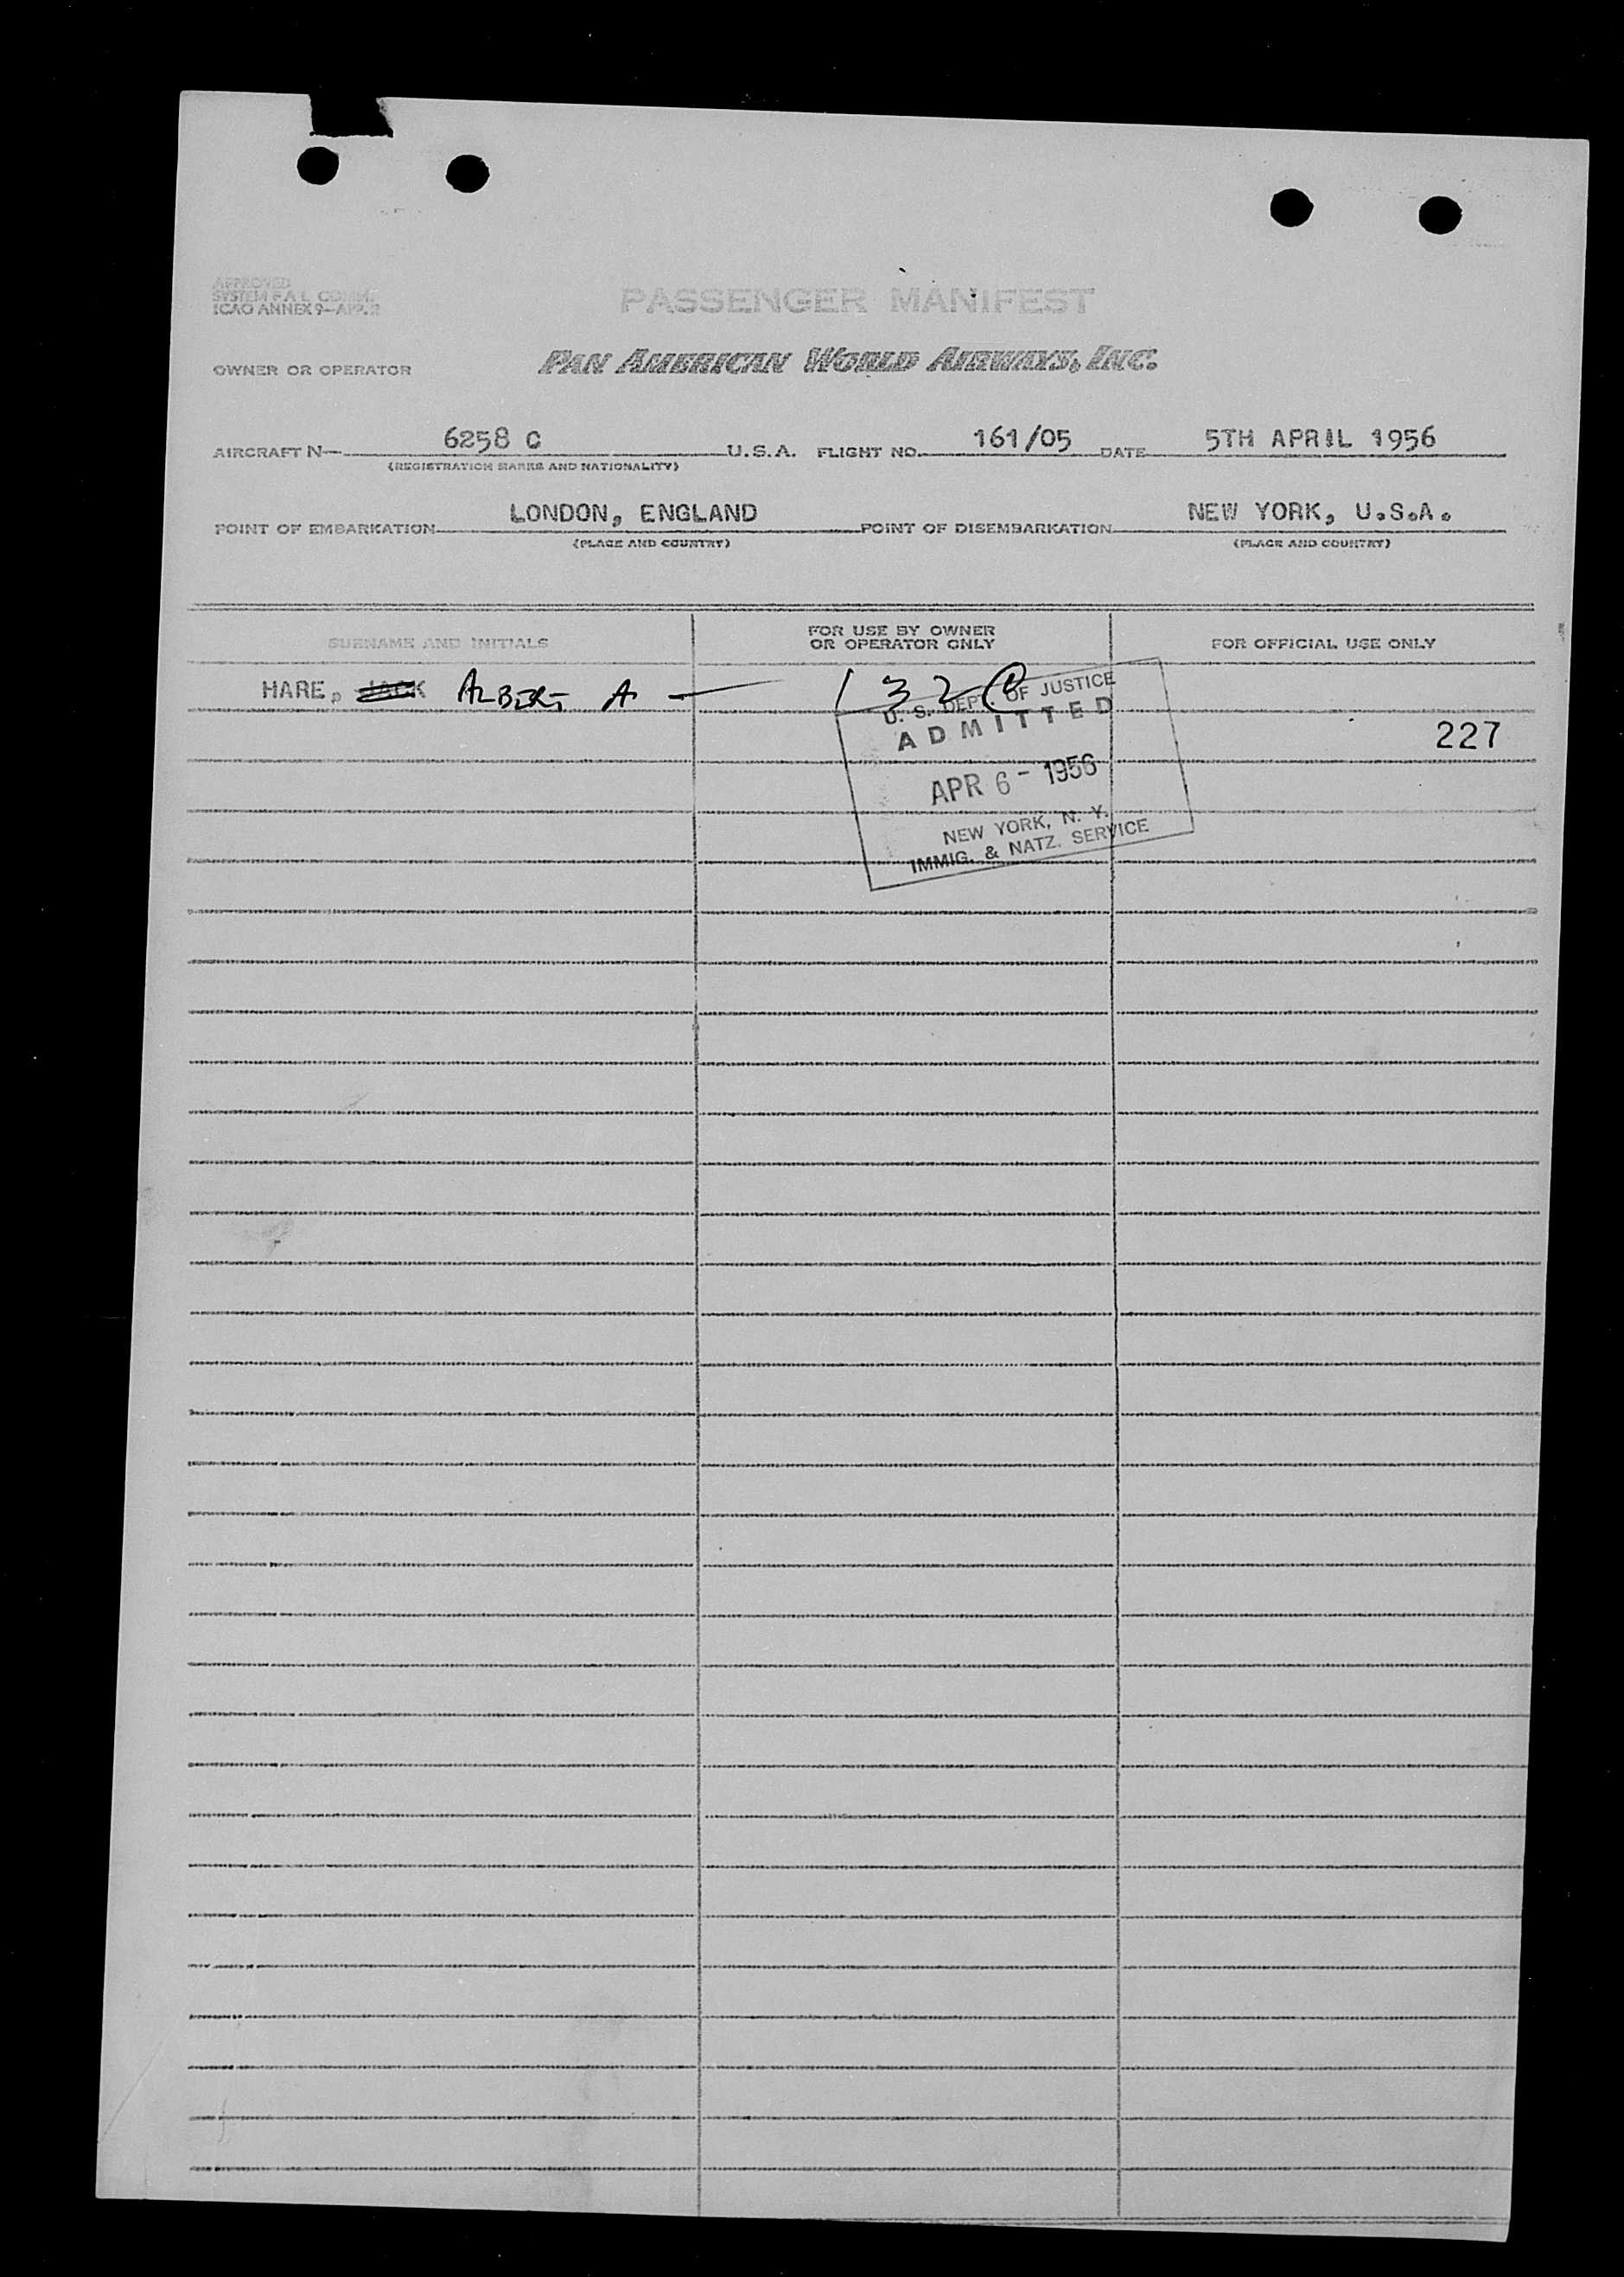 APPROVED
SYSTEM F A L COMM.
ICAO ANNEX 9-APP. 2
PASSENGER MANIFEST
OWNER OR OPERATOR PAN AMERICAN WORLD AIRWAYS, INC.
AIRCRAFT N- 6258 C U.S.A. FLIGHT NO. 161/05 DATE 5TH APRIL 1956
(REGISTRATION MARKS AND NATIONALITY)
POINT OF EMBARKATION LONDON, ENGLAND POINT OF DISEMBARKATION NEW YORK, U.S.A.
(PLACE AND COUNTRY) (PLACE AND COUNTRY)
SURNAME AND INITIALS FOR USE BY OWNER OR OPERATOR ONLY FOR OFFICIAL USE ONLY
HARE, JACK ALBERT A — 132
U. S. DEPT. OF JUSTICE
ADMITTED
227
APR 6 - 1956
NEW YORK, N. Y.
IMMIG. & NATZ. SERVICE